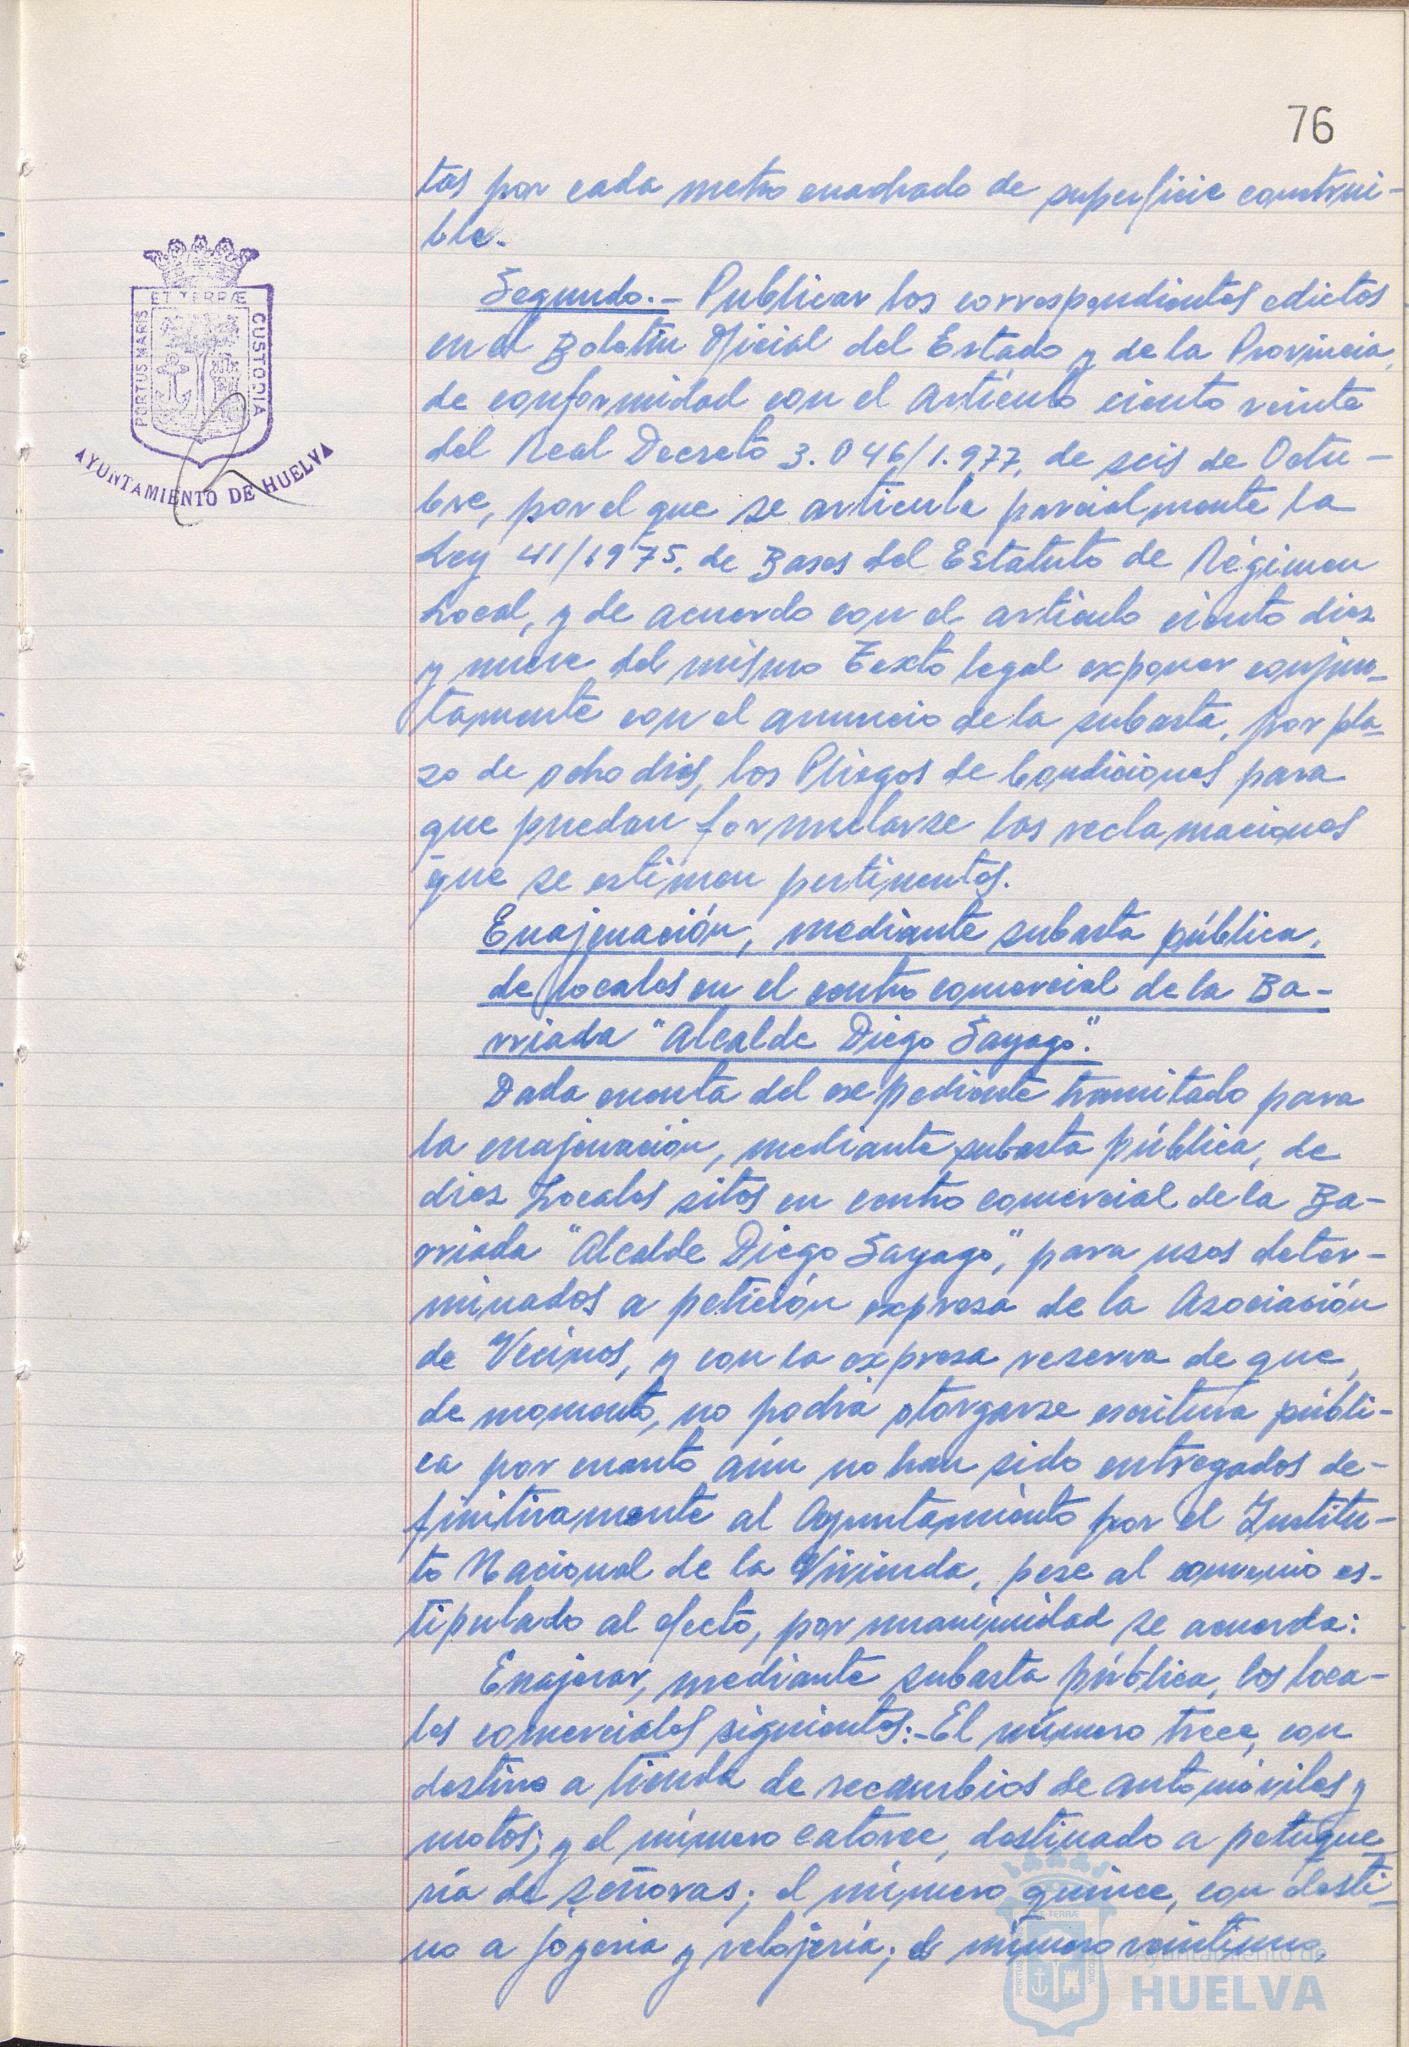 76
tas por cada metro cuadrado de superficie construi-
ble.
Segundo.- Publicar los correspondientes edictos
en el Boletín Oficial del Estado y de la Provincia,
de conformidad con el artículo ciento veinte
del Real Decreto 3.046/1.977, de seis de Octu-
bre, por el que se articula parcialmente la
Ley 41/1975, de Bases del Estatuto de Régimen
Local, y de acuerdo con el artículo ciento diez
y nueve del mismo Texto legal exponer conjun-
tamente con el anuncio de la subasta, por pla-
zo de ocho días, los Pliegos de Condiciones para
que puedan formularse las reclamaciones
que se estimen pertinentes.
Enajenación, mediante subasta pública,
de locales en el centro comercial de la Ba-
rriada "Alcalde Diego Sayago".
Dada cuenta del expediente tramitado para
la enajenación, mediante subasta pública, de
diez Locales sitos en centro comercial de la Ba-
rriada "Alcalde Diego Sayago", para usos deter-
minados a petición expresa de la Asociación
de Vecinos, y con la expresa reserva de que,
de momento, no podrá otorgarse escritura públi-
ca por cuanto aún no han sido entregados de-
finitivamente al Ayuntamiento por el Institu-
to Nacional de la Vivienda, pese al convenio es-
tipulado al efecto, por unanimidad se acuerda:
Enajenar, mediante subasta pública, los loca-
les comerciales siguientes:- El número trece, con
destino a tienda de recambios de automóviles y
motos; y el número catorce, destinado a peluque-
ría de señoras; el número quince, con desti-
no a joyería y relojería; el número veintiuno,
PORTUS MARIS
ET TERRÆ
CUSTODIA
AYUNTAMIENTO DE HUELVA
Ayuntamiento de
HUELVA